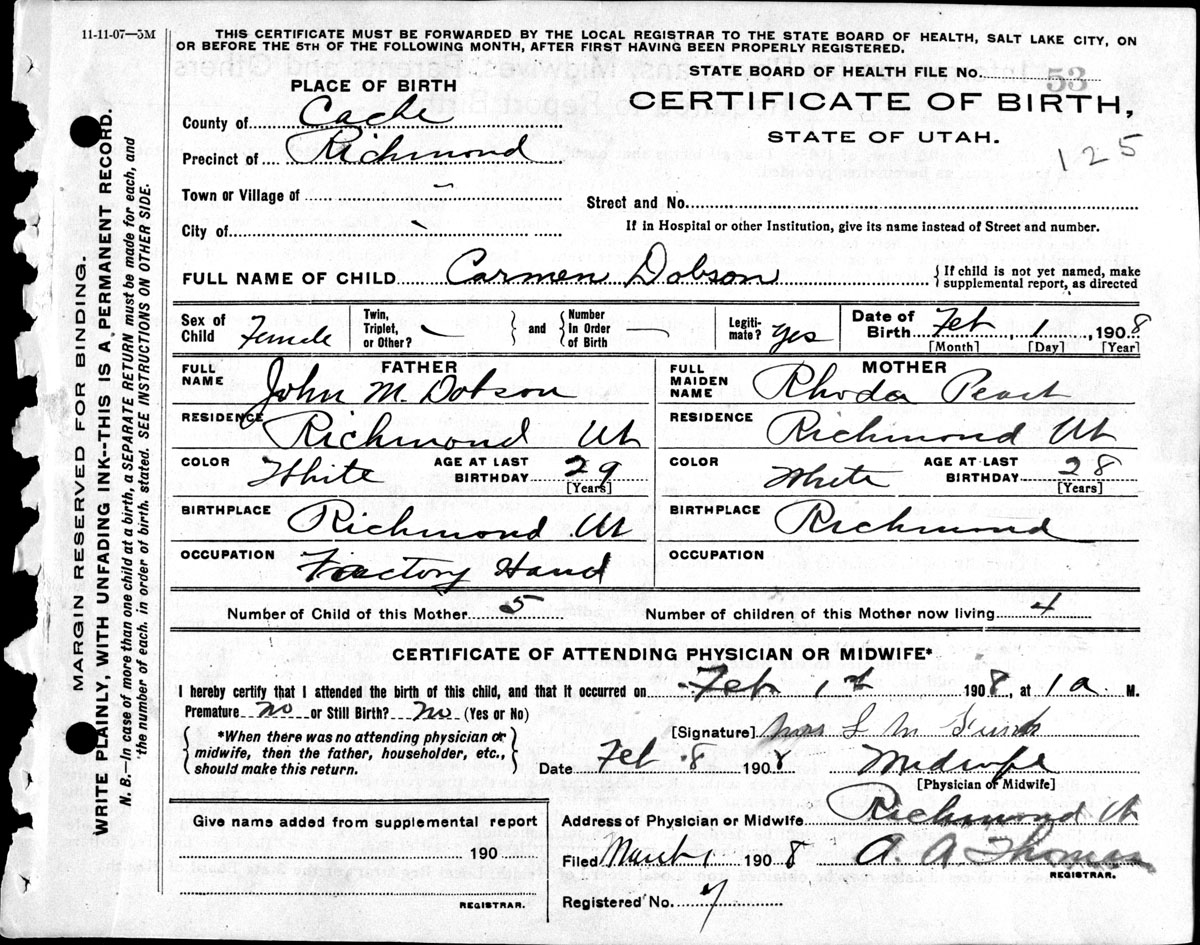 11-11-07—5M
THIS CERTIFICATE MUST BE FORWARDED BY THE LOCAL REGISTRAR TO THE STATE BOARD OF HEALTH, SALT LAKE CITY, ON
OR BEFORE THE 5TH OF THE FOLLOWING MONTH, AFTER FIRST HAVING BEEN PROPERLY REGISTERED.
STATE BOARD OF HEALTH FILE No. 53
PLACE OF BIRTH
CERTIFICATE OF BIRTH,
STATE OF UTAH.
125
County of Cache
Precinct of Richmond
Town or Village of
Street and No.
City of
If in Hospital or other Institution, give its name instead of Street and number.
FULL NAME OF CHILD Carmen Dobson { If child is not yet named, make
supplemental report, as directed
Sex of Child Female Twin, Triplet, or Other? — } and { Number In Order of Birth — Legiti-mate? Yes Date of Birth Feb 1, 1908
[Month] [Day] [Year]
FATHER
MOTHER
FULL NAME John M. Dobson
FULL MAIDEN NAME Rhoda
RESIDENCE Richmond Ut
RESIDENCE Richmond Ut
COLOR White AGE AT LAST BIRTHDAY 29 [Years]
COLOR White AGE AT LAST BIRTHDAY 28 [Years]
BIRTHPLACE Richmond Ut
BIRTHPLACE Richmond
OCCUPATION Factory Hand
OCCUPATION
Number of Child of this Mother 5
Number of children of this Mother now living 4
CERTIFICATE OF ATTENDING PHYSICIAN OR MIDWIFE*
I hereby certify that I attended the birth of this child, and that it occurred on Feb 1st 1908, at 1 a M.
Premature no or Still Birth? No (Yes or No)
{ *When there was no attending physician or
midwife, then the father, householder, etc.,
should make this return. }
[Signature] Mrs L M
Date Feb 8 1908 Midwife
[Physician or Midwife]
Address of Physician or Midwife Richmond Ut
Filed March 1 1908 A. A Thomas
REGISTRAR.
Registered No. 7
Give name added from supplemental report
190
REGISTRAR.
MARGIN RESERVED FOR BINDING.
WRITE PLAINLY, WITH UNFADING INK--THIS IS A PERMANENT RECORD.
N. B.—In case of more than one child at a birth, a SEPARATE RETURN must be made for each, and
the number of each, in order of birth, stated. SEE INSTRUCTIONS ON OTHER SIDE.